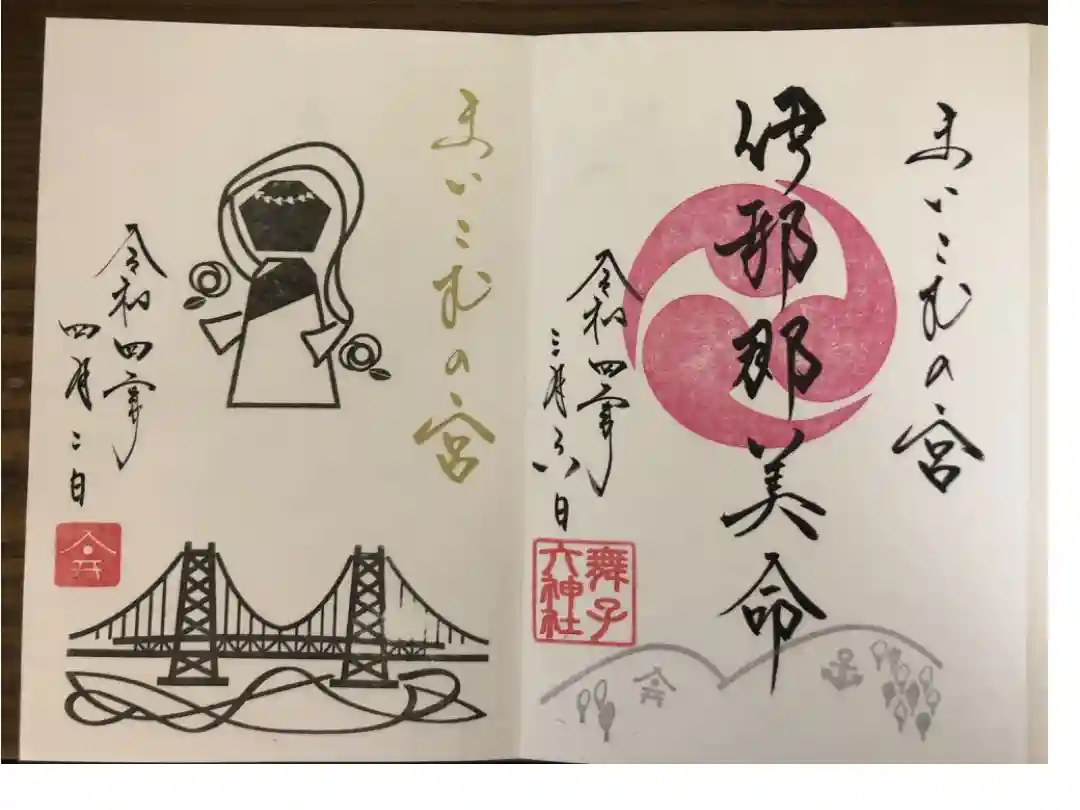 まいこむの宮
伊邪那美命
令和四年
三月六日
舞子
六神社
まいこむの宮
令和四年
四月二日